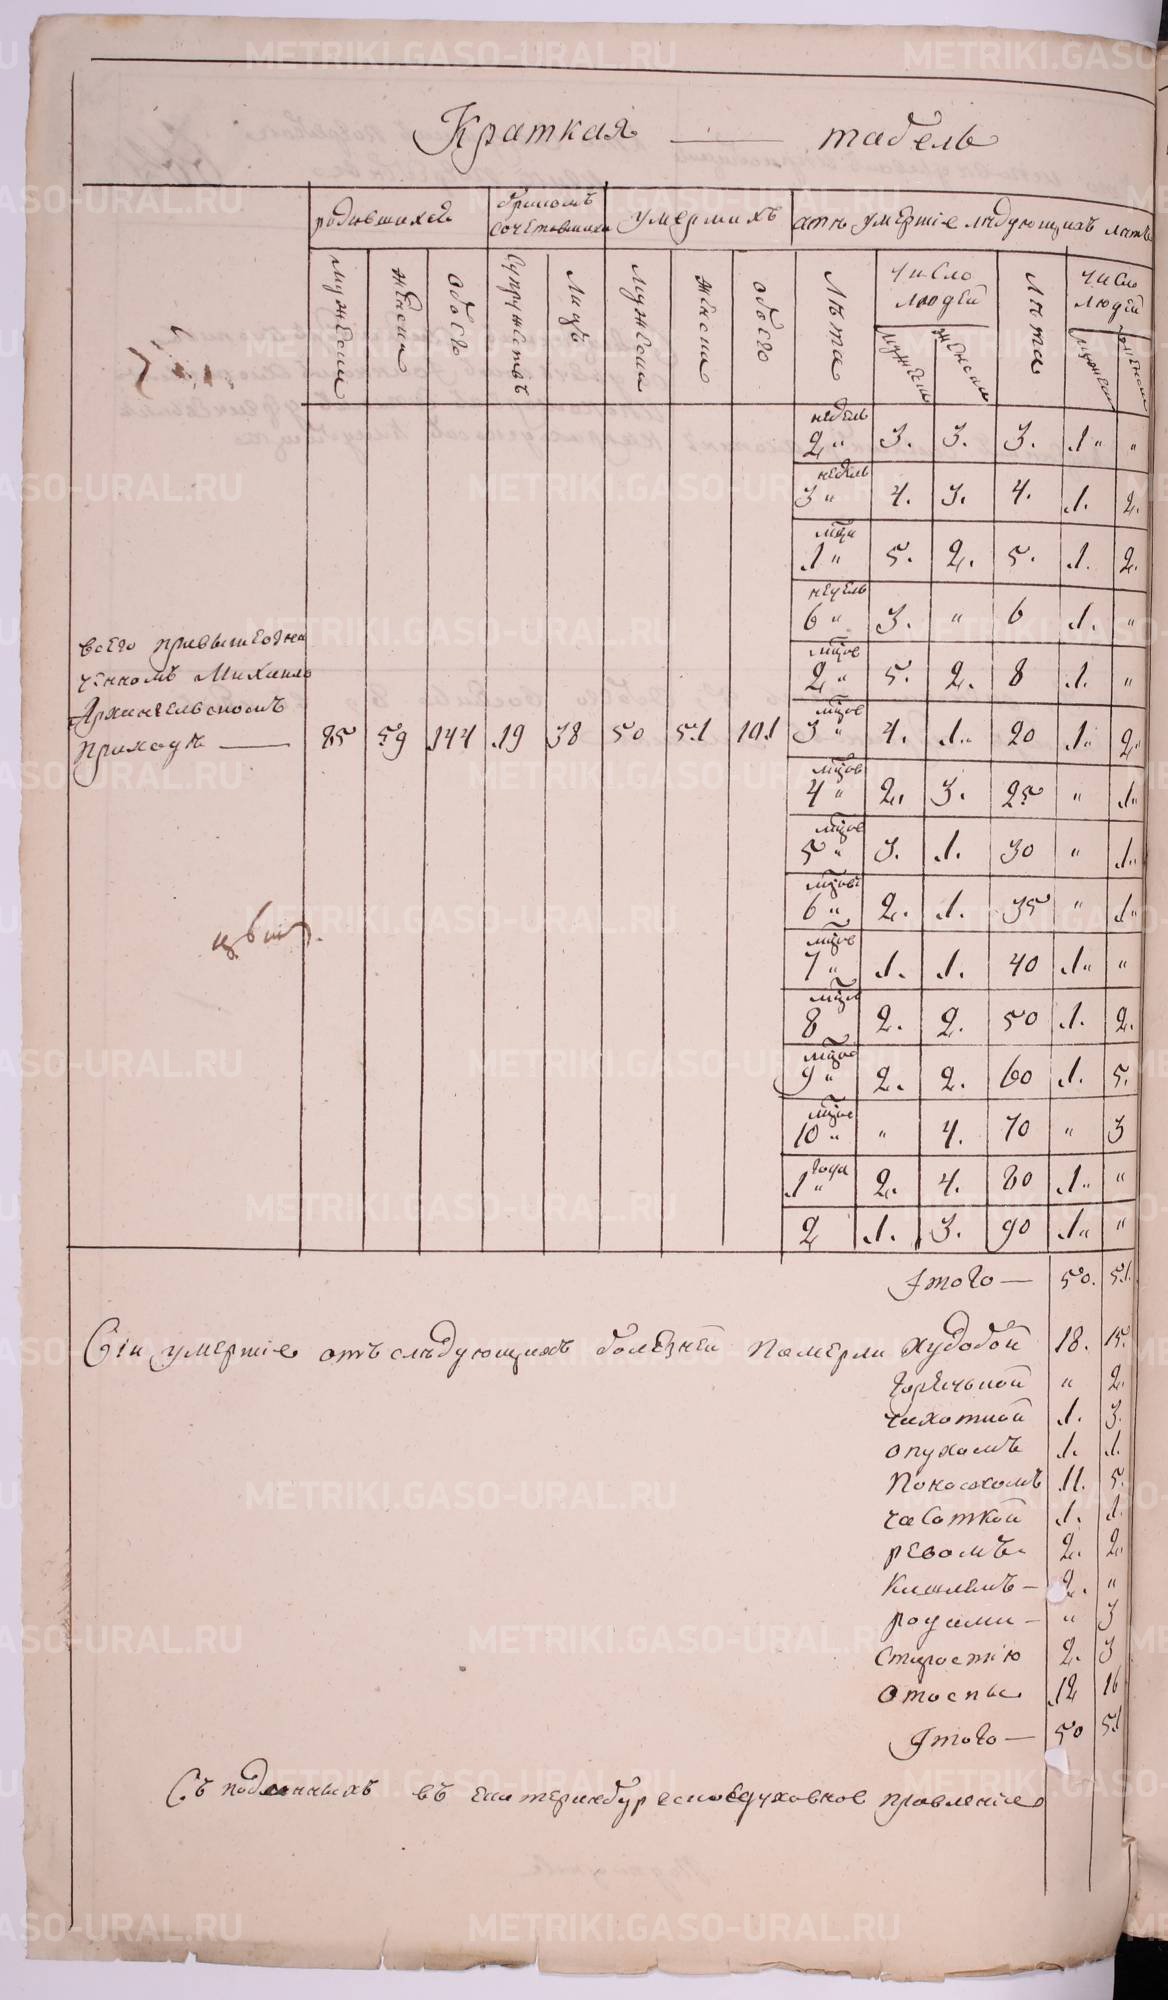 Краткая — табель
родившихся
бракомъ
сочетавшихся
умершихъ
мужеска
женска
обоего
супружествъ
лицъ
мужеска
женска
обоего
лѣта
число
людей
мужеска
женска
лѣта
число
людей
мужеска
женска
недель
2 „ 3. 3. 3. 1 „ „
недель
3 „ 4. 3. 4. 1. 2.
1 „ 5. 2. 5. 1. 2.
недель
6 „ 3. „ 6 1. „
мцов
2 „ 5. 2. 8 1. „
всего привышеозна
ченномъ Михаило
Архангельскомъ
приходѣ — 85 59 144 19 38 50 51 101
мцов
3 „ 4. 1.. 20 1.. 2..
мцов
4 „ 2.. 3. 25 „ 1..
мцов
5 „ 3. 1. 30 „ 1..
мцов
6 „ 2. 1. 35 „ 1..
мцов
7 „ 1. 1. 40 1.. „
мцов
8 2. 2. 50 1. 2.
мцов
9 „ 2. 2. 60 1. 5.
мцов
10 „ „ 4. 70 „ 3
года
1 „ 2. 4. 80 1.. „
2 1. 3. 90 1.. „
Итого — 50. 51.
Сіи умершіе отъ слѣдующихъ болезней померли Худобой 18. 15.
горячьной „ 2.
чихотной 1. 3.
опухомъ 1. 1.
Поносохомъ 11. 5.
чесоткой 1. 1.
ревомъ 2. 2.
Кашлемъ — 2. „
родами — „ 3
старостію 2. 3
отоспы 12 16
Итого — 50 51
Съ подлинныхъ въ Екатеринбургское духовное правленіе
METRIKI.GASO-URAL.RU